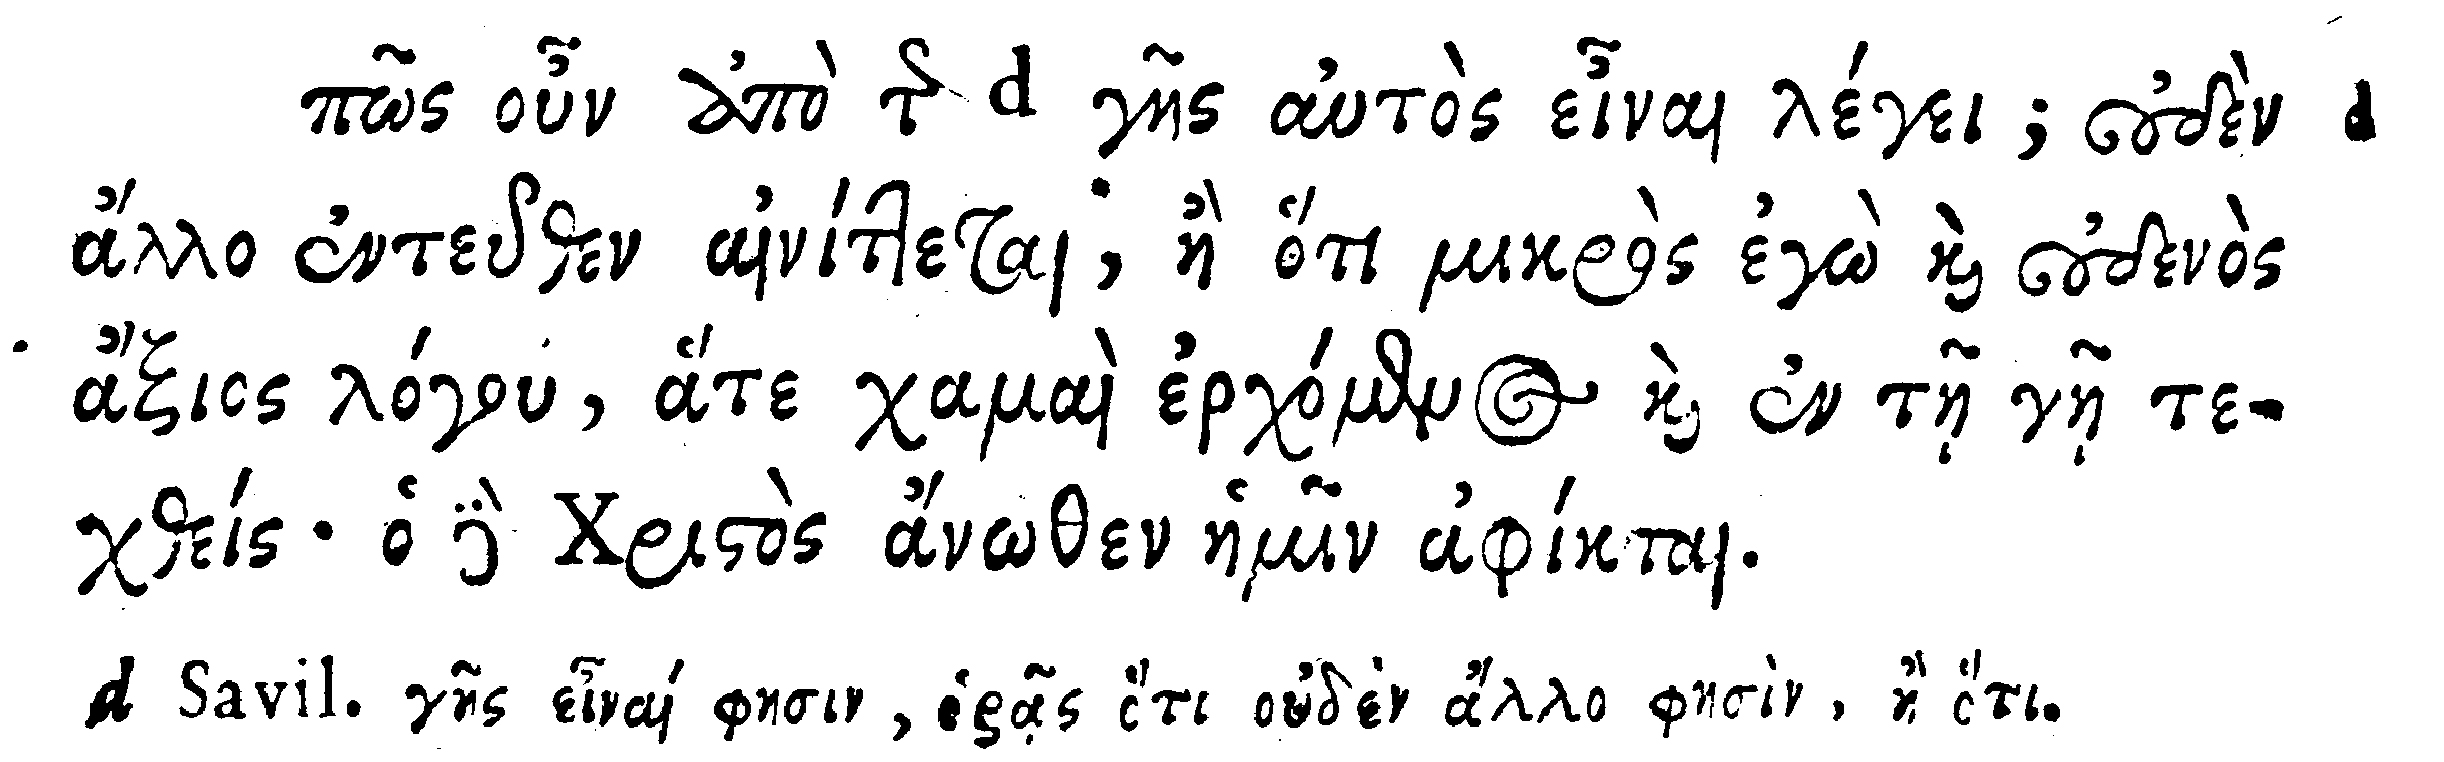 πῶς οὖν ἀπὸ τῆς d γῆς αὐτὸς εἶναι λέγει; οὐδὲν d
ἄλλο ἐντεῦθεν αἰνίττεται, ἢ ὅτι μικρὸς ἐγὼ καὶ οὐδενὸς
ἄξιος λόγου, ἅτε χαμαὶ ἐρχόμενος καὶ ἐν τῇ γῇ τε-
χθείς· ὁ δὲ Χριστὸς ἄνωθεν ἡμῖν ἀφίκται.
d Savil. γῆς εἶναί φησιν, ὁρᾷς ὅτι οὐδὲν ἄλλο φησὶν, ἢ ὅτι.